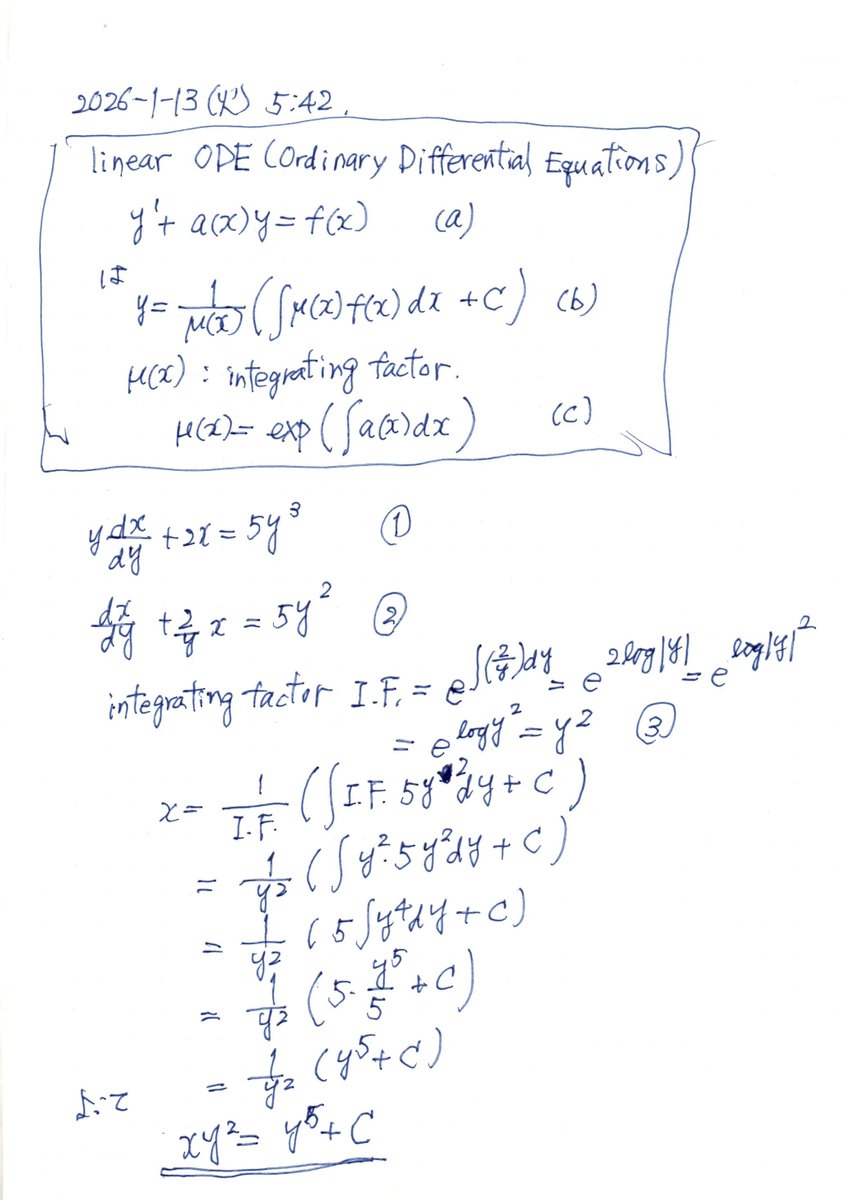 2026-1-13(火) 5:42.
linear ODE (Ordinary Differential Equations)
y'+ a(x)y = f(x) (a)
は
y = 1/μ(x) (∫μ(x)f(x)dx + C) (b)
μ(x) : integrating factor.
μ(x) = exp(∫a(x)dx) (c)
y dx/dy + 2x = 5y³ ①
dx/dy + 2/y x = 5y² ②
integrating factor I.F. = e^∫(2/y)dy = e^2log|y| = e^log|y|²
= e^logy² = y² ③
x = 1/I.F. (∫I.F. 5y²dy + C)
= 1/y² (∫y²·5y²dy + C)
= 1/y² (5∫y⁴dy + C)
= 1/y² (5·y⁵/5 + C)
= 1/y² (y⁵ + C)
よって
xy² = y⁵ + C